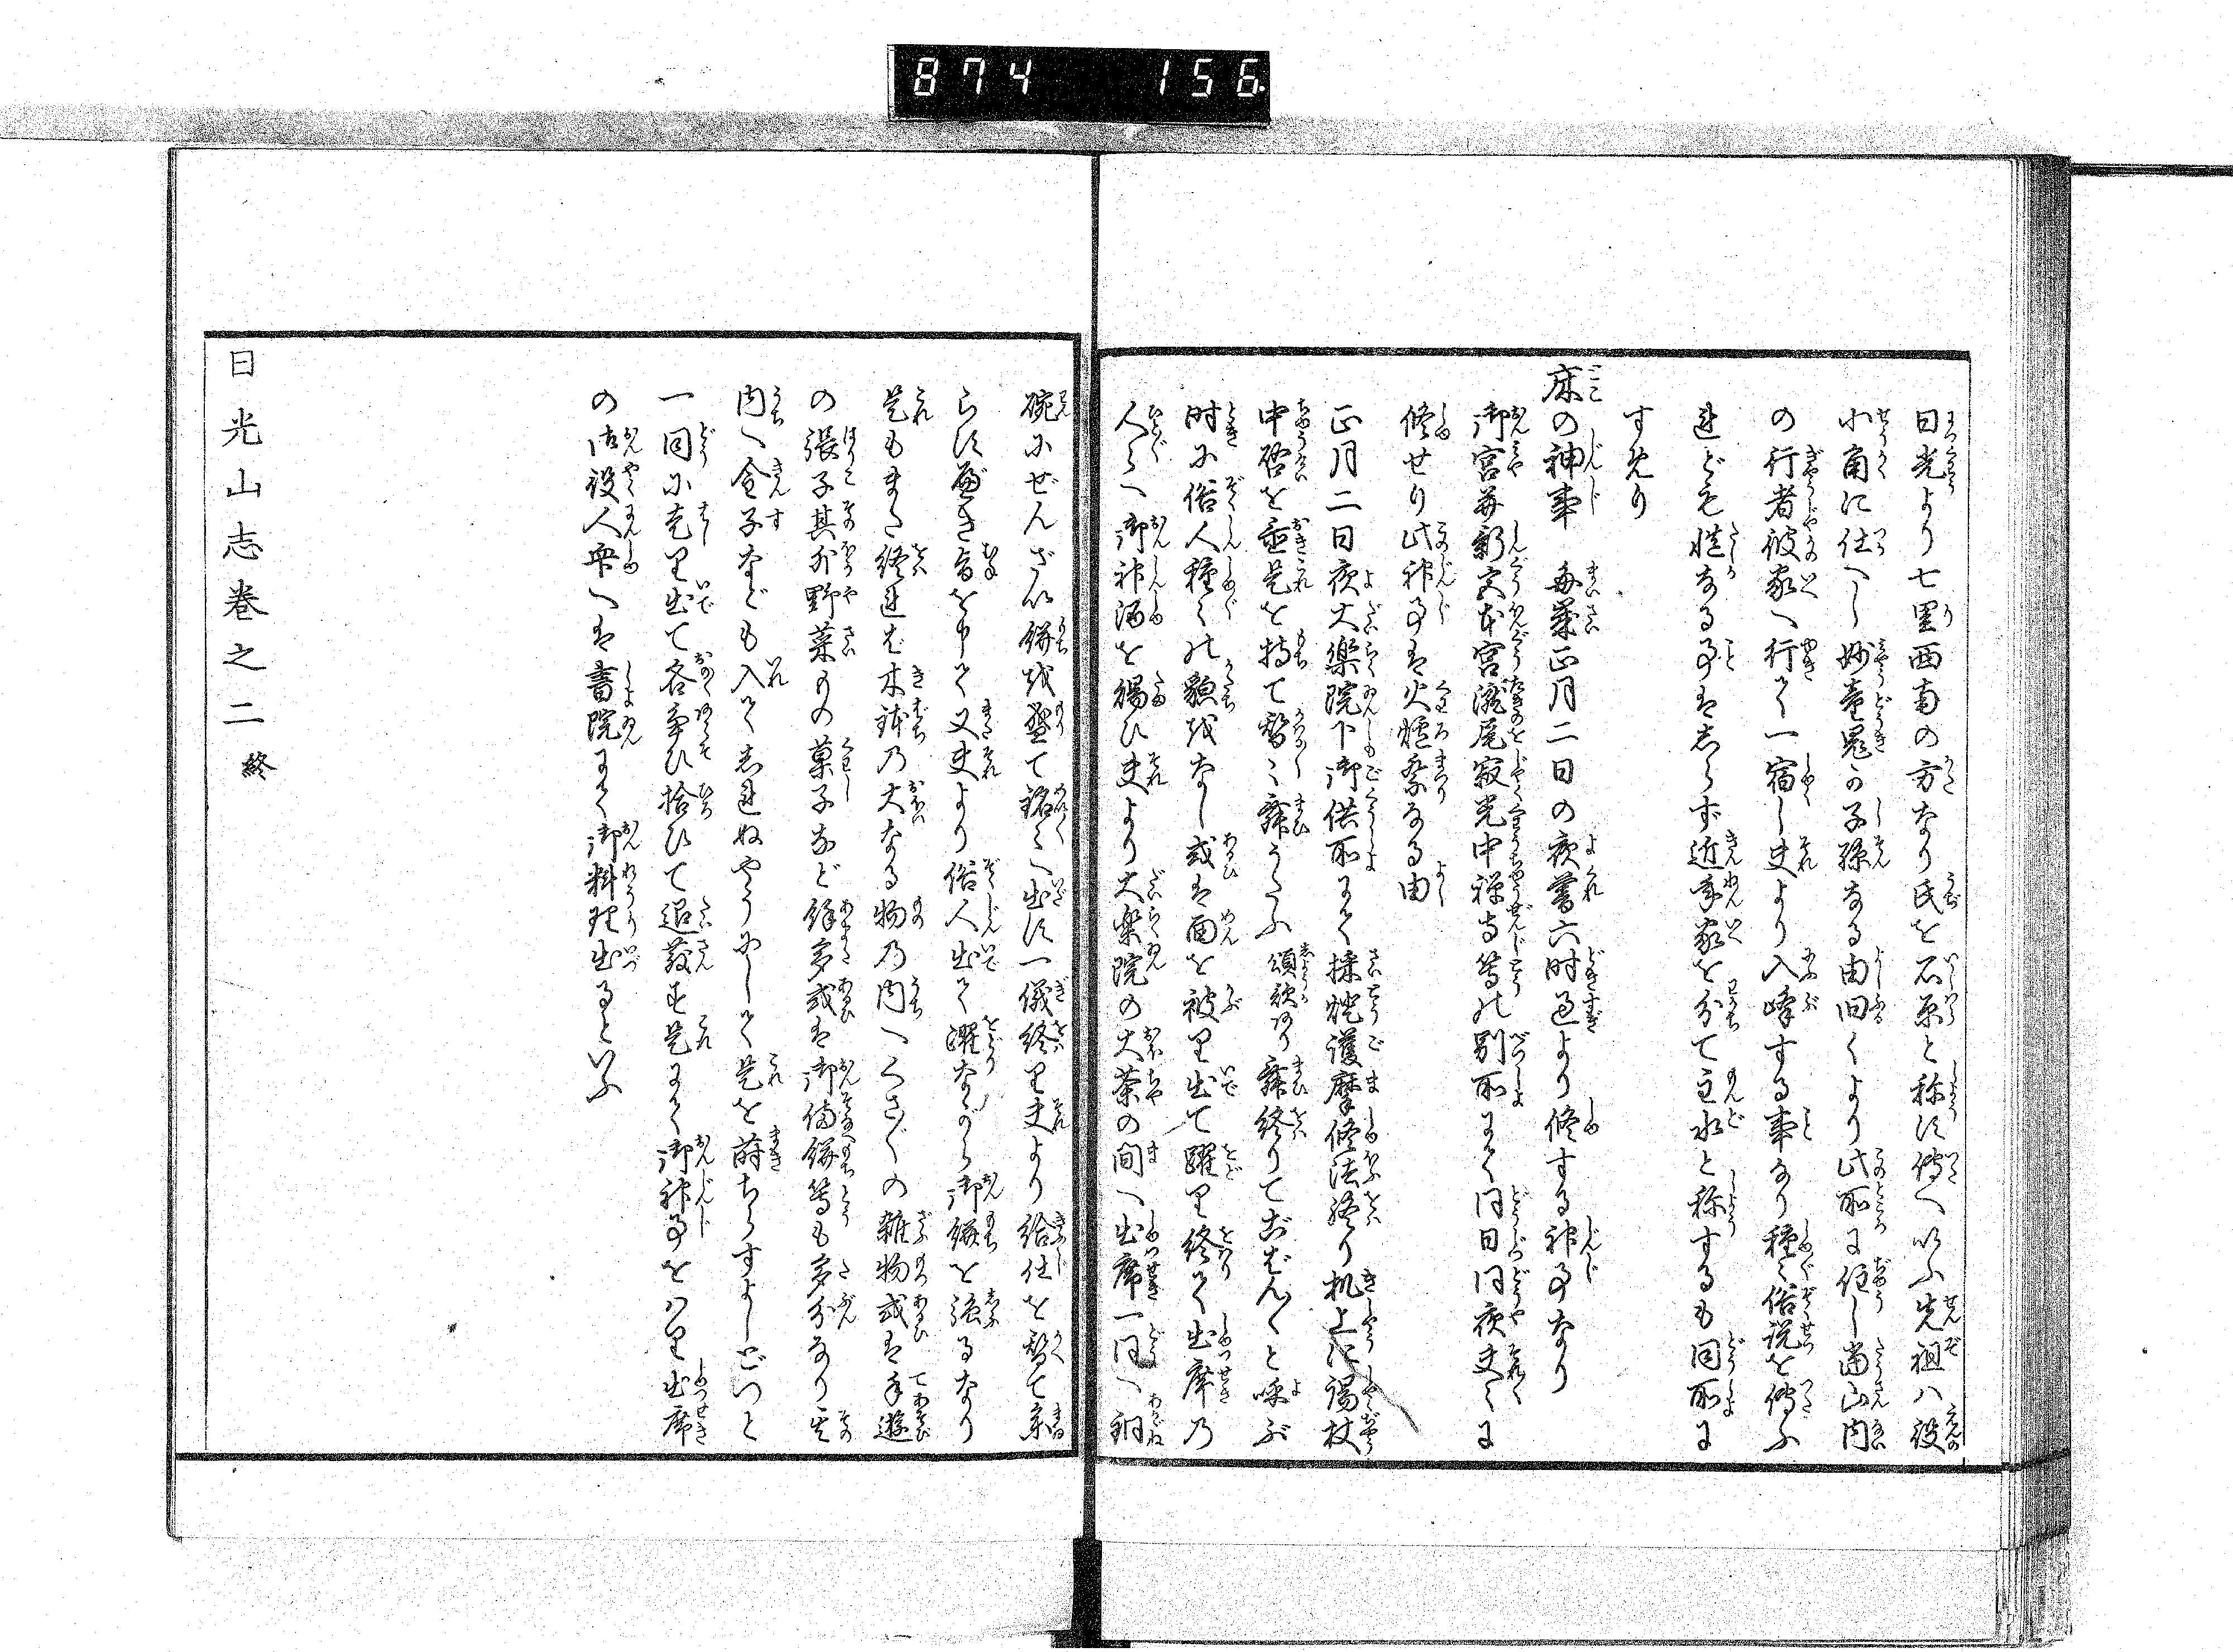 874 156
日光より七里西南の方なり氏を石原と称に傳へいふ先祖ハ役
小角に仕へし妙童鬼の子孫なる由旧くより此所に住し當山内
の行者彼家へ行て一宿し夫より入峰する事なり種々俗説を傳ふ
れども慥なる事はしらず近年家を分て主水と称するも同所に
すめり
床の神事 毎歳正月二日の夜暮六時過より修する神事なり
御宮并新宮本宮瀧尾寂光中禅寺等の別所にて同日同夜夫々に
修せり此神事は火爐祭なる由
正月二日夜大樂院下御供所にて採燈護摩修法終り机上に錫杖
中啓を置是を持て暫く舞うたふ 頌歌あり 舞終りてごばん〱と呼ぶ
時に俗人種々の貌をなし或は面を被り出て躍り終て出席の
人々へ御神酒を賜ひ夫より大樂院の大茶の間へ出席一同へ銅
碗にぜんざい餅を盛て銘々へ出に一儀終り夫より給仕を暫て系
らに産き旨を申て又夫より俗人出て躍ながら御餅を強るなり
是もまた終れば木鉢の大なる物の内へくさ〲の雑物或は手遊
の張子其外野菜もの菓子など餘多或は御備餅等も多分なり其
内へ金子なども入てしれぬやうにして是を蒔ちらすよしどつと
一同に走り出て各争ひ拾ひて退散す是にて御神事をハり出席
の御役人衆へは書院にて御料理出るといふ
日光山志巻之二 終